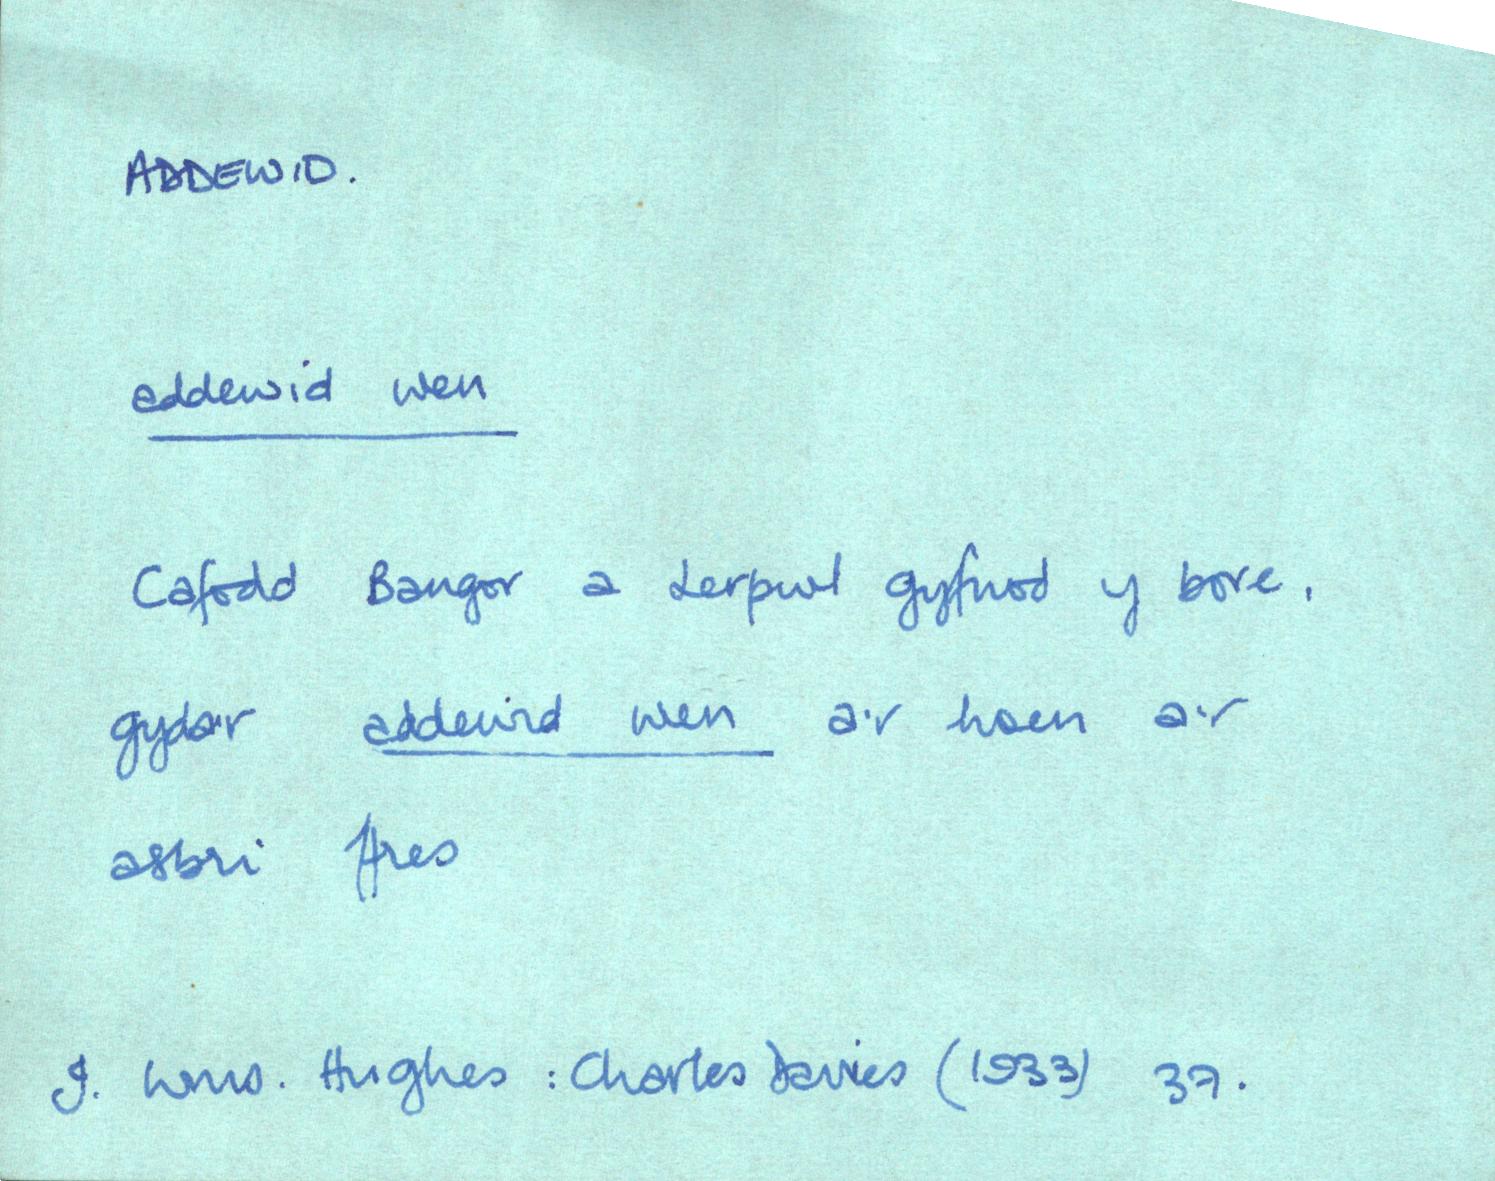 ADDEWID.
addewid wen
Cafodd Bangor a Lerpwl gyfnod y bore,
gyda'r addewid wen a'r hoen a'r
asbri ffres
J. Wms. Hughes : Charles Davies (1933) 37.